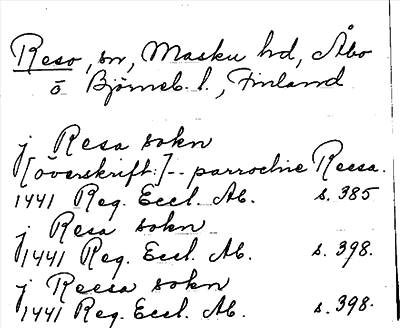 Reso, sn, Masku hd, Åbo
o Björneb. l., Finland
j Resa sokn
[överskrift:] -- parrochie Reesa.
1441 Reg. Eccl. Ab. s. 385
j Resa sokn
1441 Reg. Eccl. Ab. s. 398.
j Reesa sokn
1441 Reg. Eccl. Ab. s. 398.